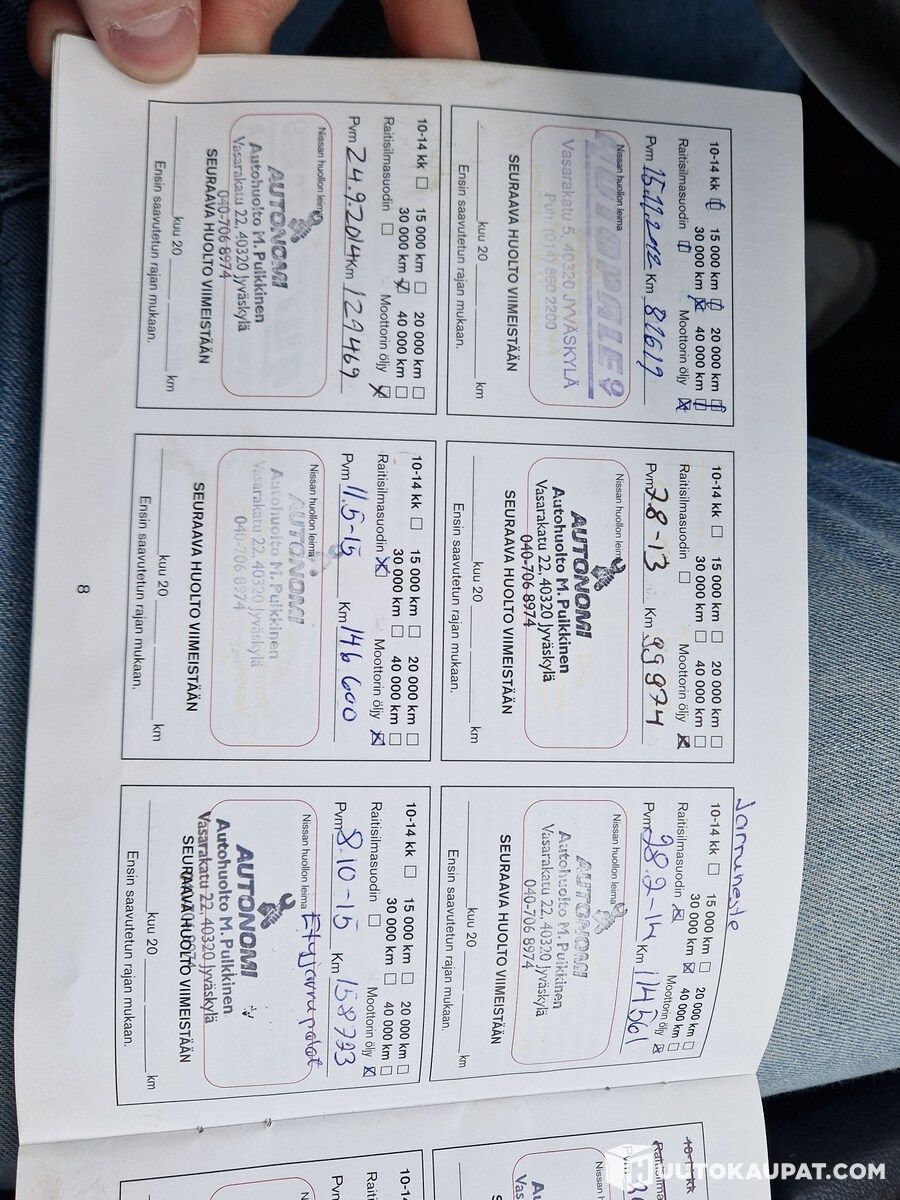 10-14 kk 15 000 km 20 000 km
30 000 km 40 000 km
Raitisilmasuodin Moottorin öljy
Pvm 15.11.2012 Km 87619
Nissan huollon leima
Vasarakatu 5, 40320 JYVÄSKYLÄ
Puh. (014) 880 2200
SEURAAVA HUOLTO VIIMEISTÄÄN
kuu 20 km
Ensin saavutetun rajan mukaan.
10-14 kk 15 000 km 20 000 km
30 000 km 40 000 km
Raitisilmasuodin Moottorin öljy
Pvm 28-13 Km 99974
Nissan huollon leima
AUTONOMI
Autohuolto M.Pulkkinen
Vasarakatu 22, 40320 Jyväskylä
040-706 8974
SEURAAVA HUOLTO VIIMEISTÄÄN
kuu 20 km
Ensin saavutetun rajan mukaan.
Jarruneste
10-14 kk 15 000 km 20 000 km
30 000 km 40 000 km
Raitisilmasuodin Moottorin öljy
Pvm 28.2-14 Km 114561
Nissan huollon leima
AUTONOMI
Autohuolto M.Pulkkinen
Vasarakatu 22, 40320 Jyväskylä
040-706 8974
SEURAAVA HUOLTO VIIMEISTÄÄN
kuu 20 km
Ensin saavutetun rajan mukaan.
10-14 kk 15 000 km 20 000 km
30 000 km 40 000 km
Raitisilmasuodin Moottorin öljy
Pvm 24.9.2014 Km 129469
Nissan huollon leima
AUTONOMI
Autohuolto M.Pulkkinen
Vasarakatu 22, 40320 Jyväskylä
040-706 8974
SEURAAVA HUOLTO VIIMEISTÄÄN
kuu 20 km
Ensin saavutetun rajan mukaan.
10-14 kk 15 000 km 20 000 km
30 000 km 40 000 km
Raitisilmasuodin Moottorin öljy
Pvm 11.5-15 Km 146 600
Nissan huollon leima
AUTONOMI
Autohuolto M.Pulkkinen
Vasarakatu 22, 40320 Jyväskylä
040-706 8974
SEURAAVA HUOLTO VIIMEISTÄÄN
kuu 20 km
Ensin saavutetun rajan mukaan.
10-14 kk 15 000 km 20 000 km
30 000 km 40 000 km
Raitisilmasuodin Moottorin öljy
Pvm 8.10-15 Km 158723
Nissan huollon leima Etujarrupalat
AUTONOMI
Autohuolto M.Pulkkinen
Vasarakatu 22, 40320 Jyväskylä
SEURAAVA HUOLTO VIIMEISTÄÄN
kuu 20 km
Ensin saavutetun rajan mukaan.
8
HUUTOKAUPAT.COM